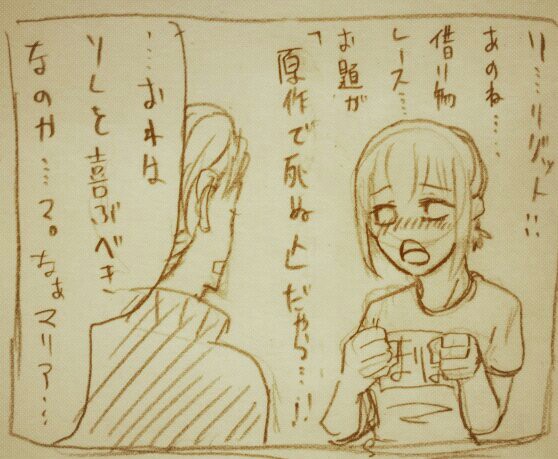 リ……リゲット…!!
あのね……
借り物
レース……
お題が
「原作で死ぬ人」だから…!!
……おれは
ソレを喜ぶべき
なのか……？なぁマリア…
まりあ